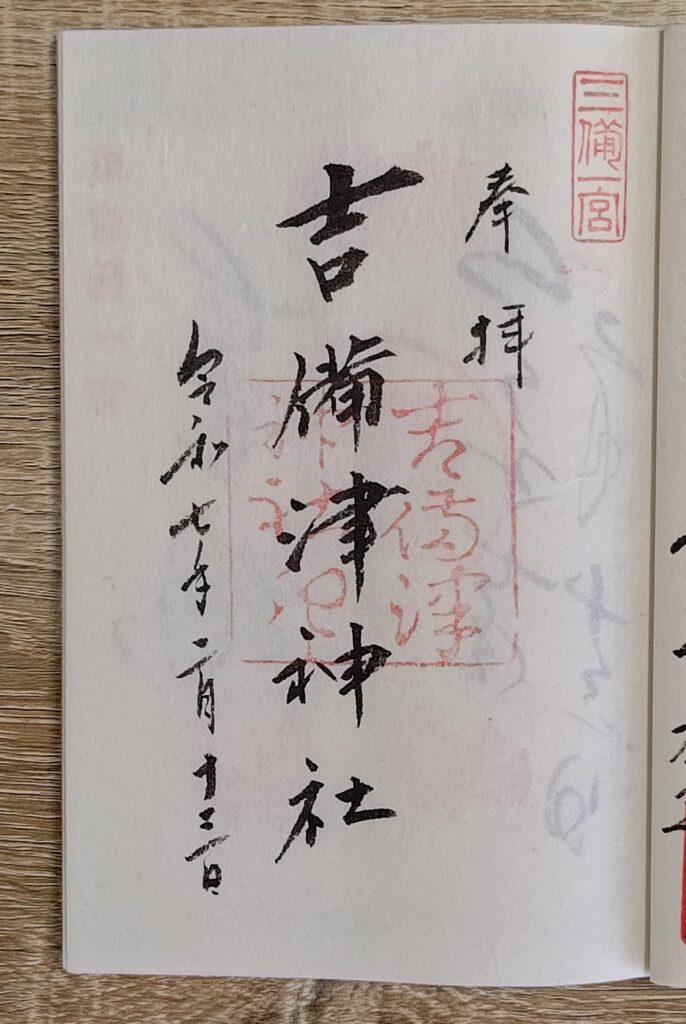 三備一宮
奉拝
吉備津神社
吉備津
神社
令和七年二月十三日